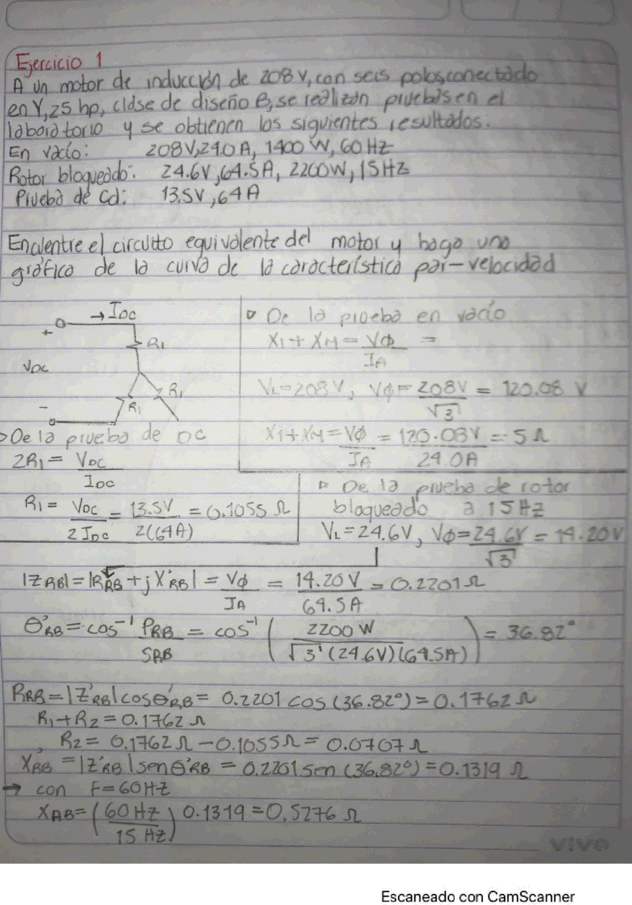 Ejercicio 1
A un motor de inducción de 208V, con seis polos, conectado
en Y, 25 hp, clase de diseño B, se realizan pruebas en el
laboratorio y se obtienen los siguientes resultados.
En vacío: 208V, 24.0A, 1400 W, 60 Hz
Rotor bloqueado: 24.6V, 64.5A, 2200W, 15Hz
Prueba de Cd: 13.5V, 64A
Encuentre el circuito equivalente del motor y haga una
gráfico de la curva de la característica par-velocidad
→ IDC
+
R1
VDC
R1
R1
-
▷ De la prueba de DC
2R1 = VDC / IDC
R1 = VDC / 2IDC = 13.5V / 2(64A) = 0.1055 Ω
▷ De la prueba en vacío
X1 + XM = VØ / IA =
VL = 208V, VØ = 208V / √3 = 120.08 V
X1 + XM = VØ / IA = 120.08V / 24.0A = 5 Ω
▷ De la prueba de rotor
bloqueado a 15Hz
VL = 24.6V, VØ = 24.6V / √3 = 14.20V
|ZRB| = |RRB + jX'RB| = VØ / IA = 14.20V / 64.5A = 0.2201 Ω
θ'RB = cos⁻¹ PRB / SRB = cos⁻¹ (2200 W / √3 (24.6V)(64.5A)) = 36.82°
RRB = |Z'RB| cosθ'RB = 0.2201 cos (36.82°) = 0.1762 Ω
R1 + R2 = 0.1762 Ω
R2 = 0.1762 Ω - 0.1055 Ω = 0.0707 Ω
XRB = |Z'RB| senθ'RB = 0.2201 sen (36.82°) = 0.1319 Ω
→ con F = 60Hz
XRB = (60 Hz / 15 Hz) 0.1319 = 0.5276 Ω
vivo
Escaneado con CamScanner